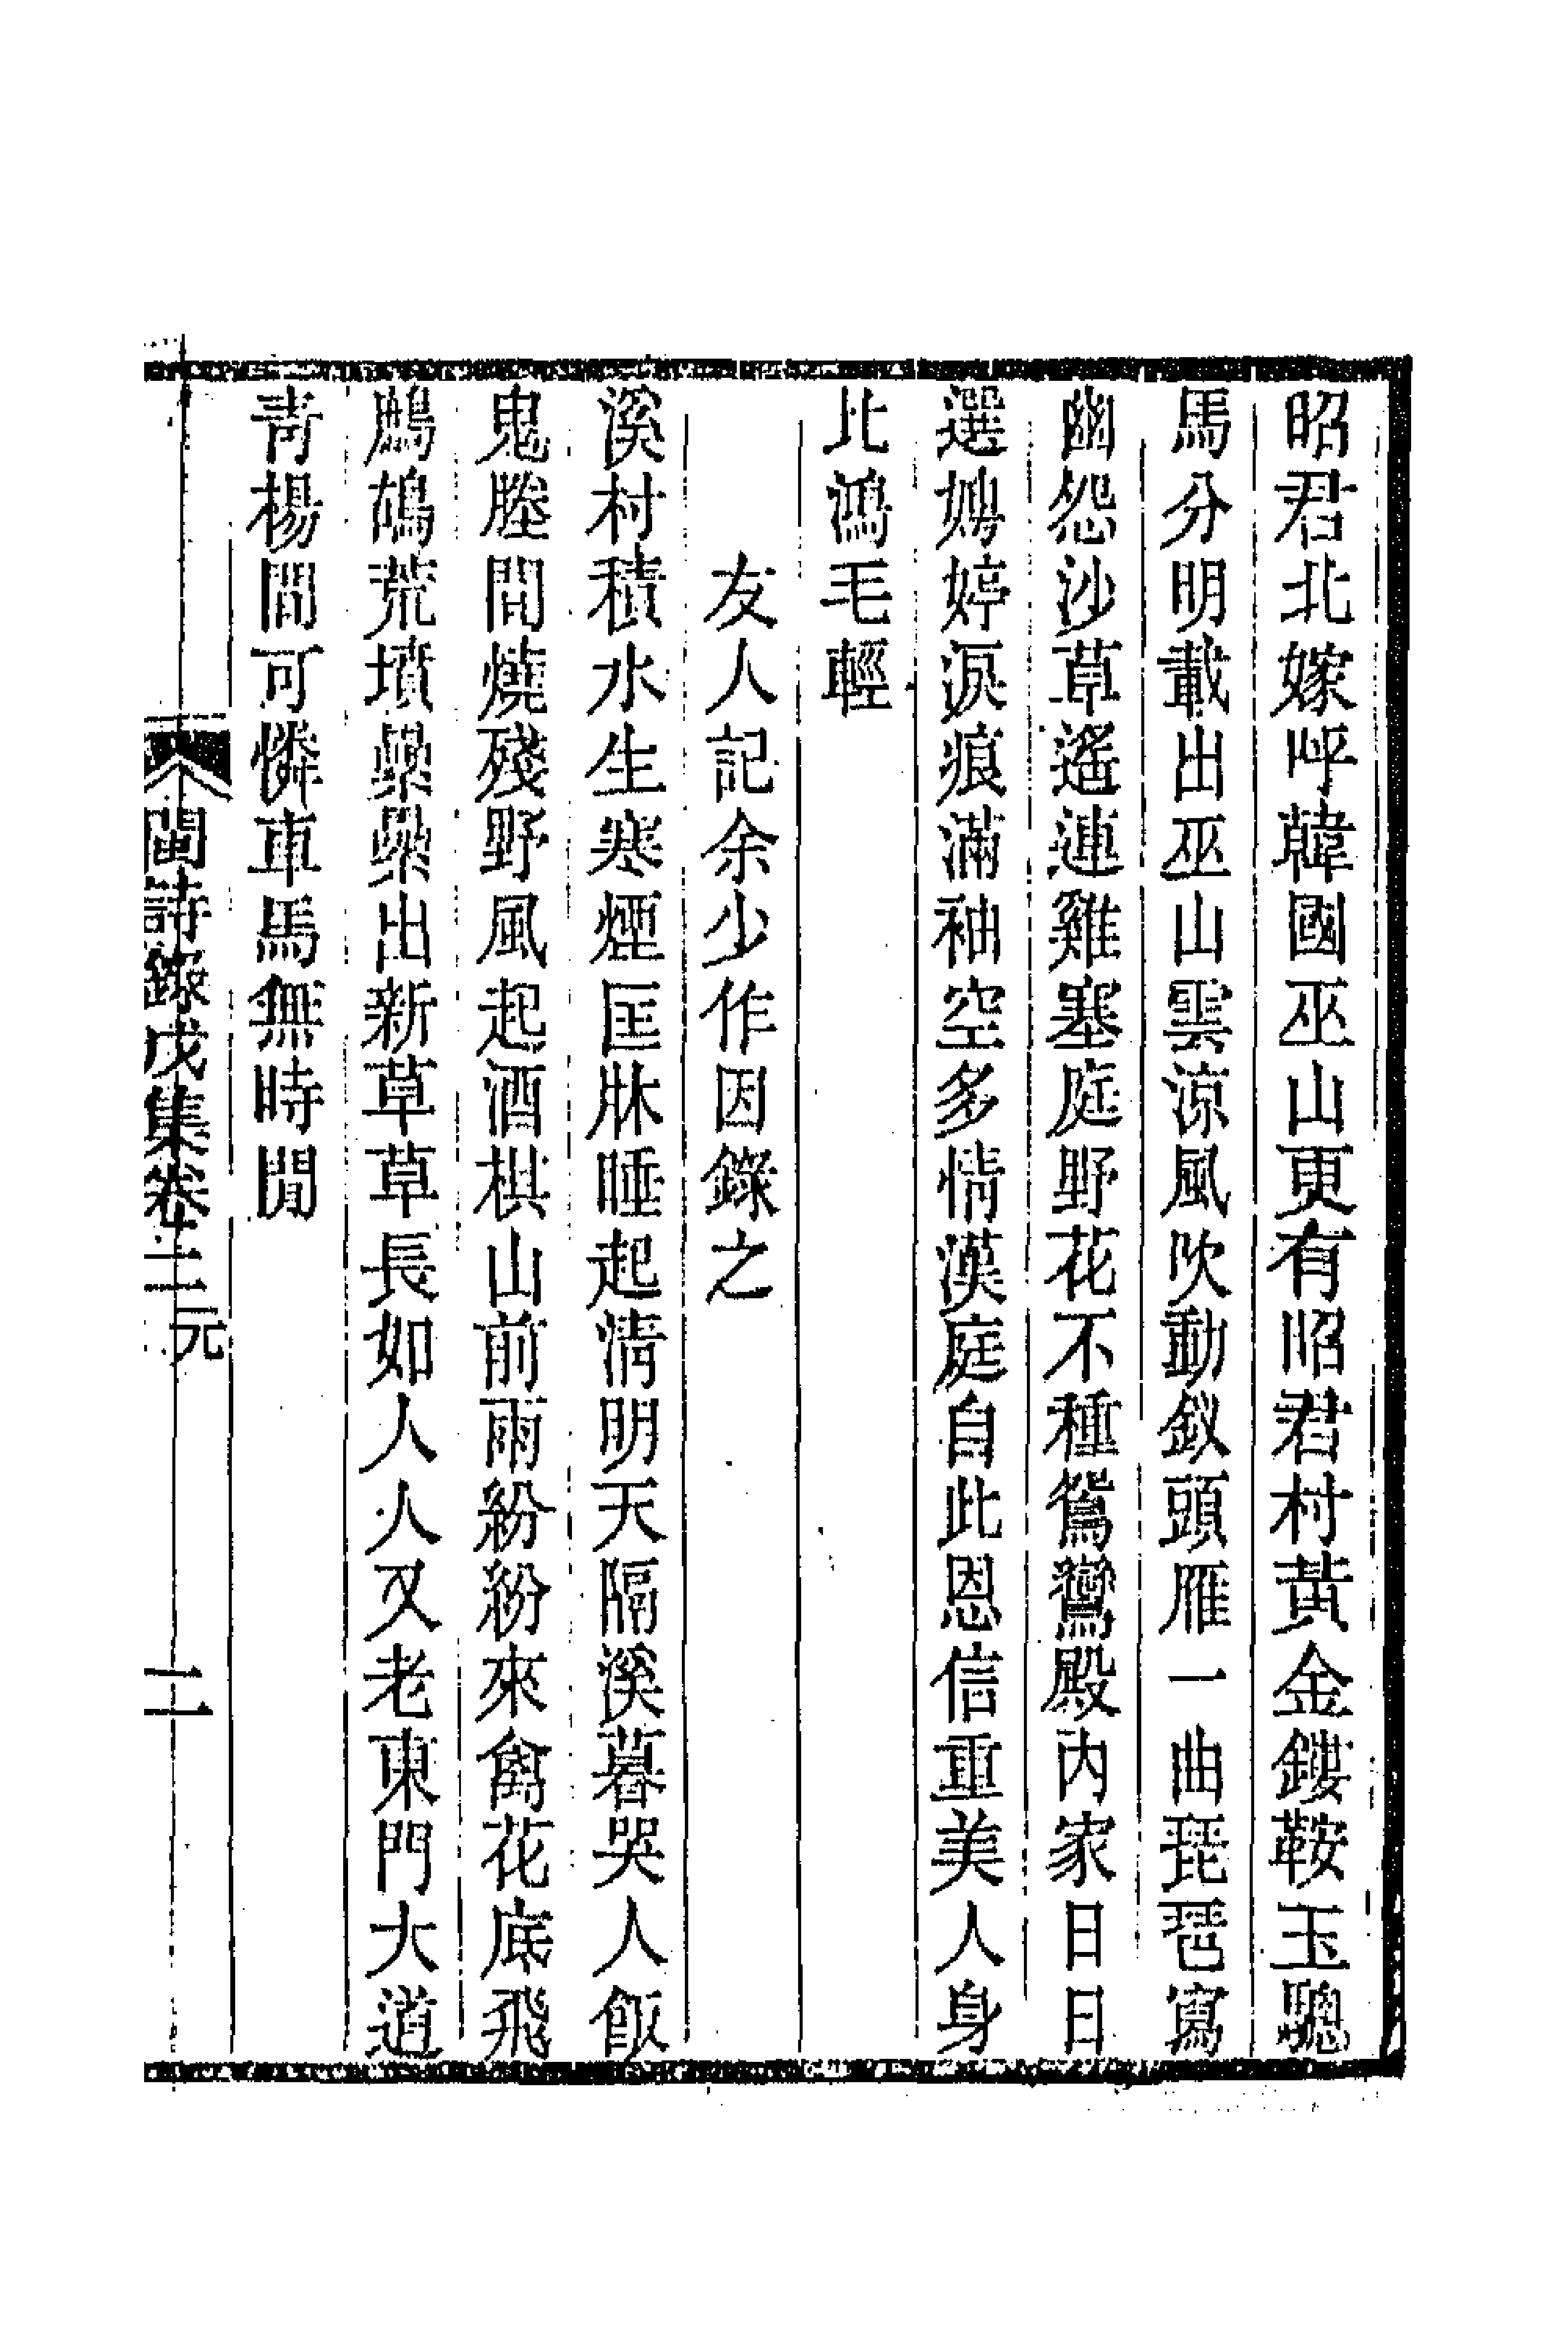 昭君北嫁呼韓國巫山更有昭君村黃金鏤鞍玉驄
馬分明載出巫山雲涼風吹動釵頭雁一曲琵琶寫
幽怨沙草遙連雞塞庭野花不種鴛鸞殿內家日日
選娉婷淚痕滿袖空多情漢庭自此恩信重美人身
比鴻毛輕
友人記余少作因錄之
溪村積水生寒煙匡牀睡起清明天隔溪暮哭人飯
鬼塍間燒殘野風起酒棋山前雨紛紛來禽花底飛
鷓鴣荒墳纍纍出新草草長如人人又老東門大道
青楊間可憐車馬無時閒
閩詩錄戊集卷二 元 二